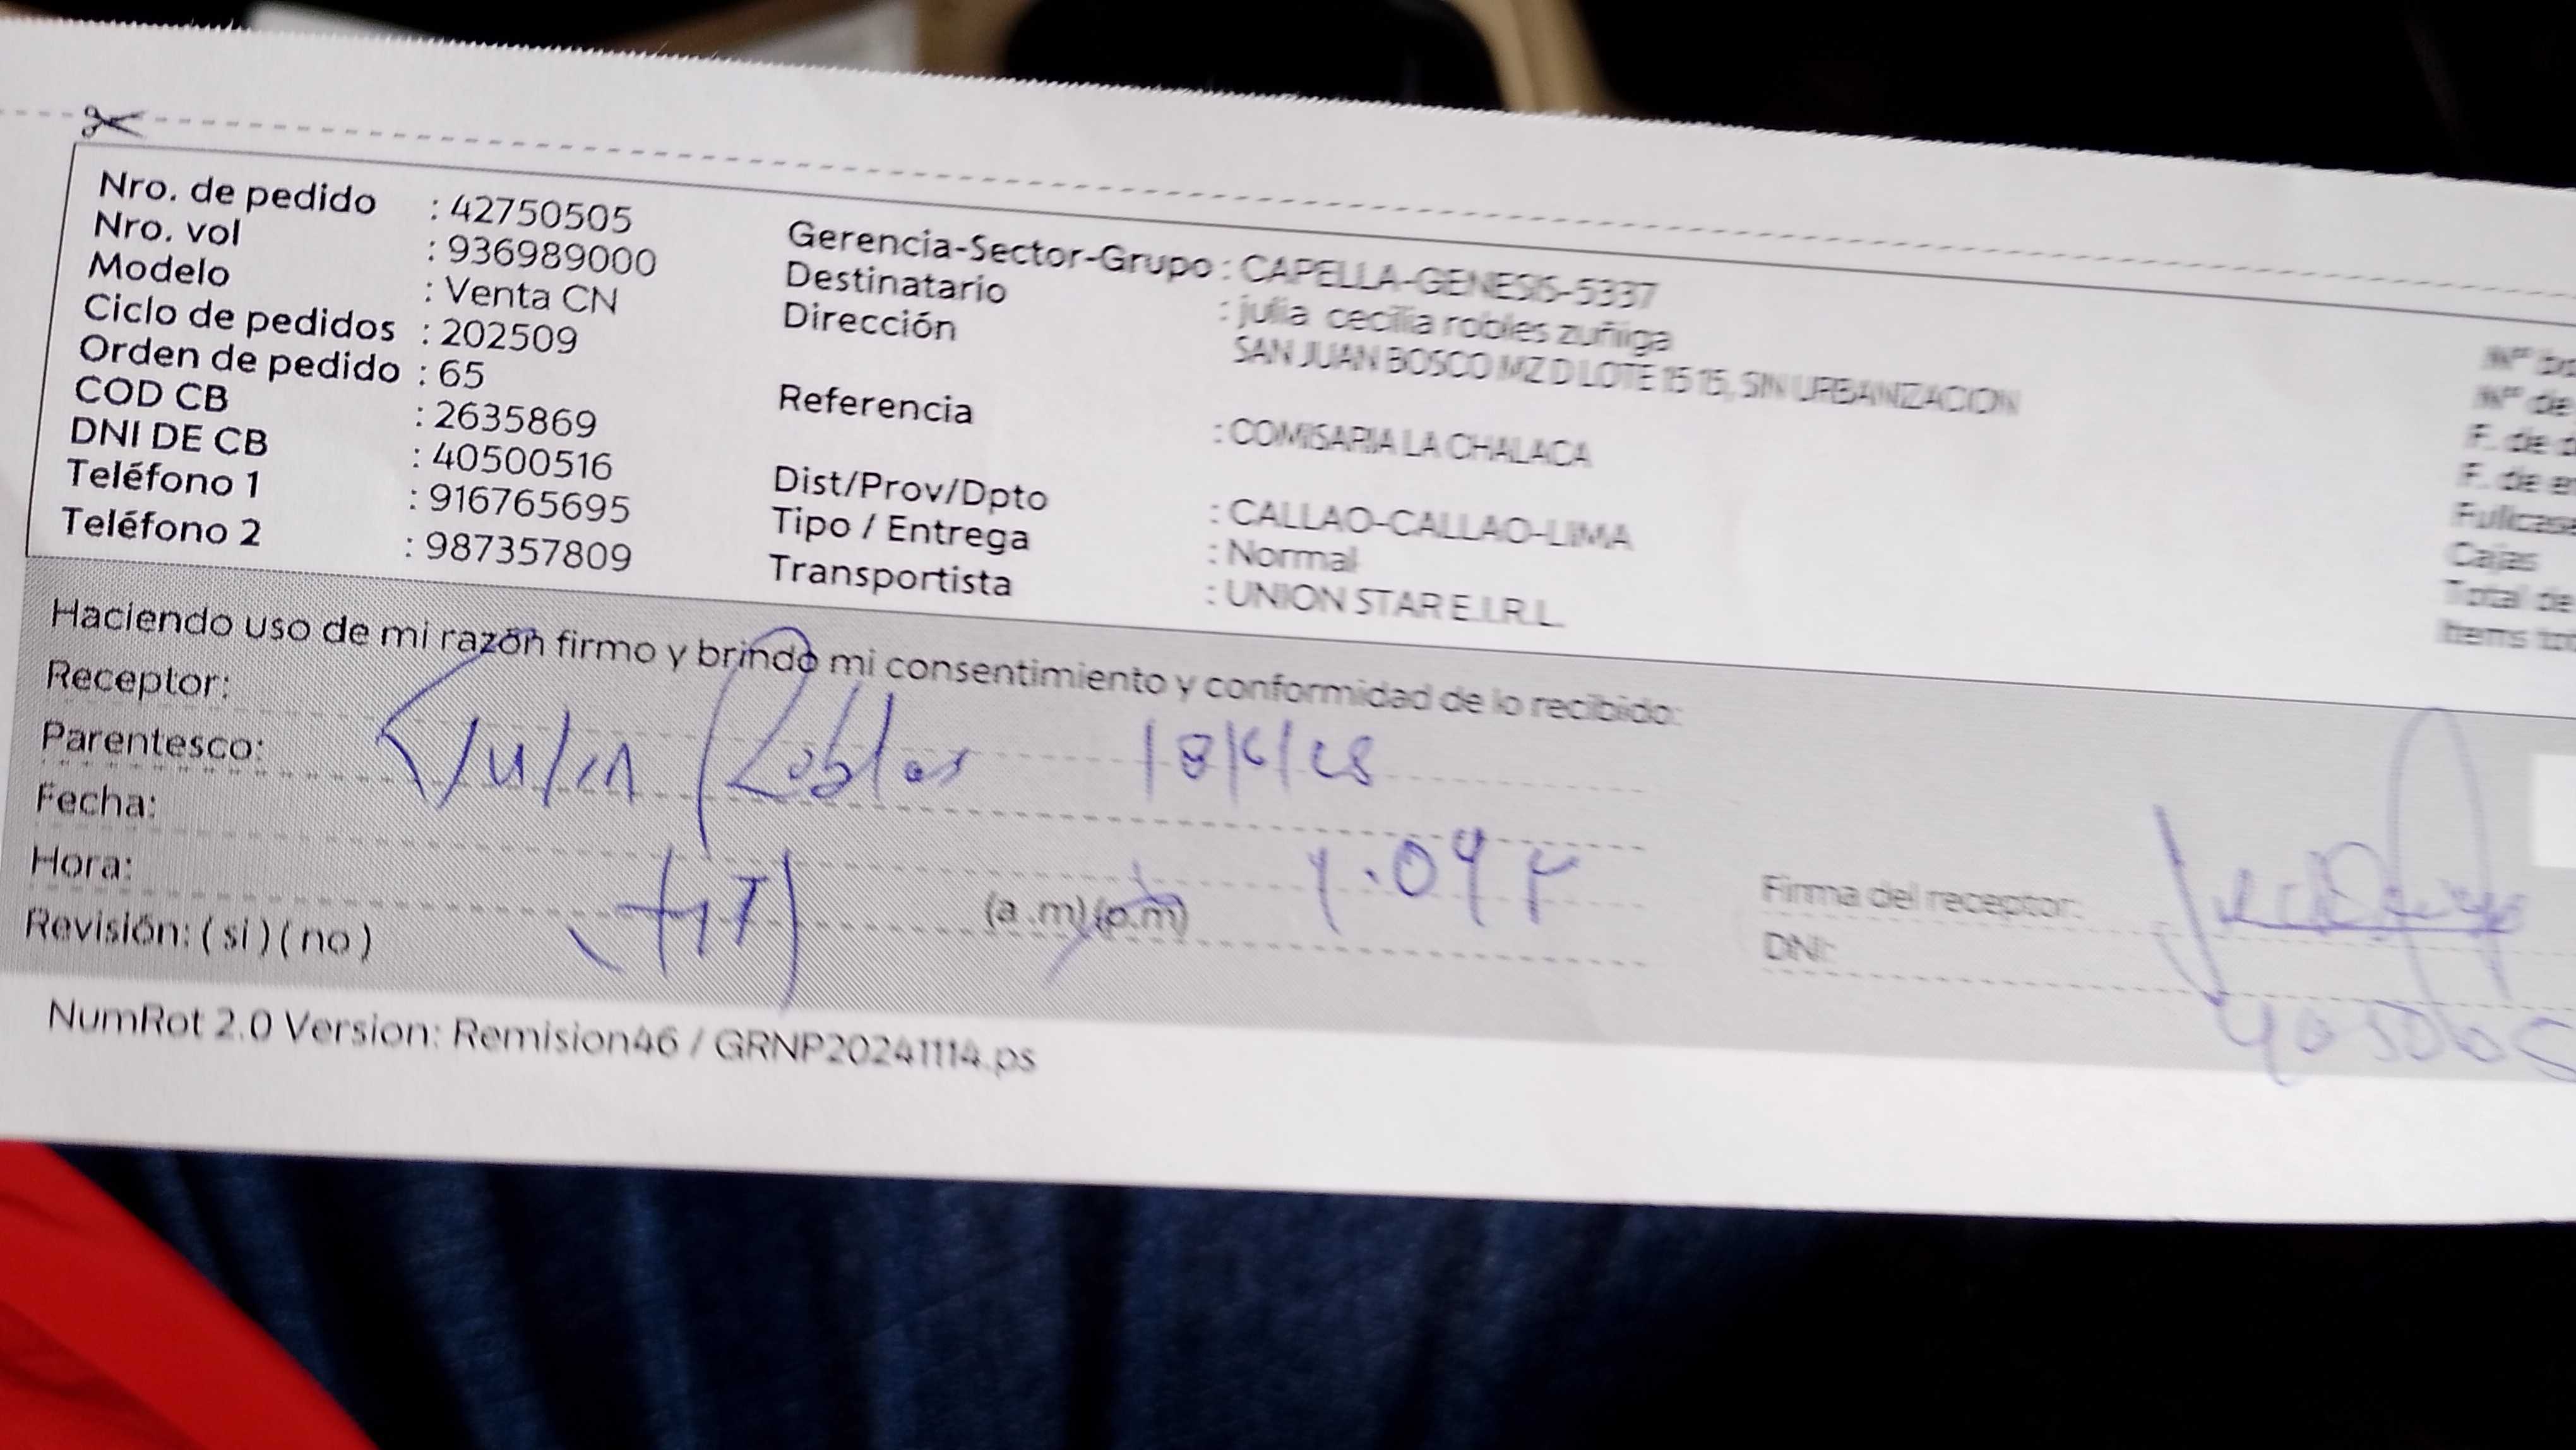 Nro. de pedido : 42750505
Nro. vol : 936989000
Modelo : Venta CN
Ciclo de pedidos : 202509
Orden de pedido : 65
COD CB : 2635869
DNI DE CB : 40500516
Teléfono 1 : 916765695
Teléfono 2 : 987357809
Gerencia-Sector-Grupo : CAPELLA-GENESIS-5337
Destinatario : julia cecilia robles zuñiga
Dirección SAN JUAN BOSCO MZ D LOTE 15 15, SIN URBANIZACION
Referencia : COMISARIA LA CHALACA
Dist/Prov/Dpto : CALLAO-CALLAO-LIMA
Tipo / Entrega : Normal
Transportista : UNION STAR E.I.R.L.
F. de
F. de
Cajas
Total de
Haciendo uso de mi razón firmo y brindo mi consentimiento y conformidad de lo recibido:
Receptor:
Parentesco: Julia Robles
Fecha:
Hora: (a.m) (p.m)
Revisión: ( si ) ( no )
Firma del receptor:
DNI:
NumRot 2.0 Version: Remision46 / GRNP20241114.ps